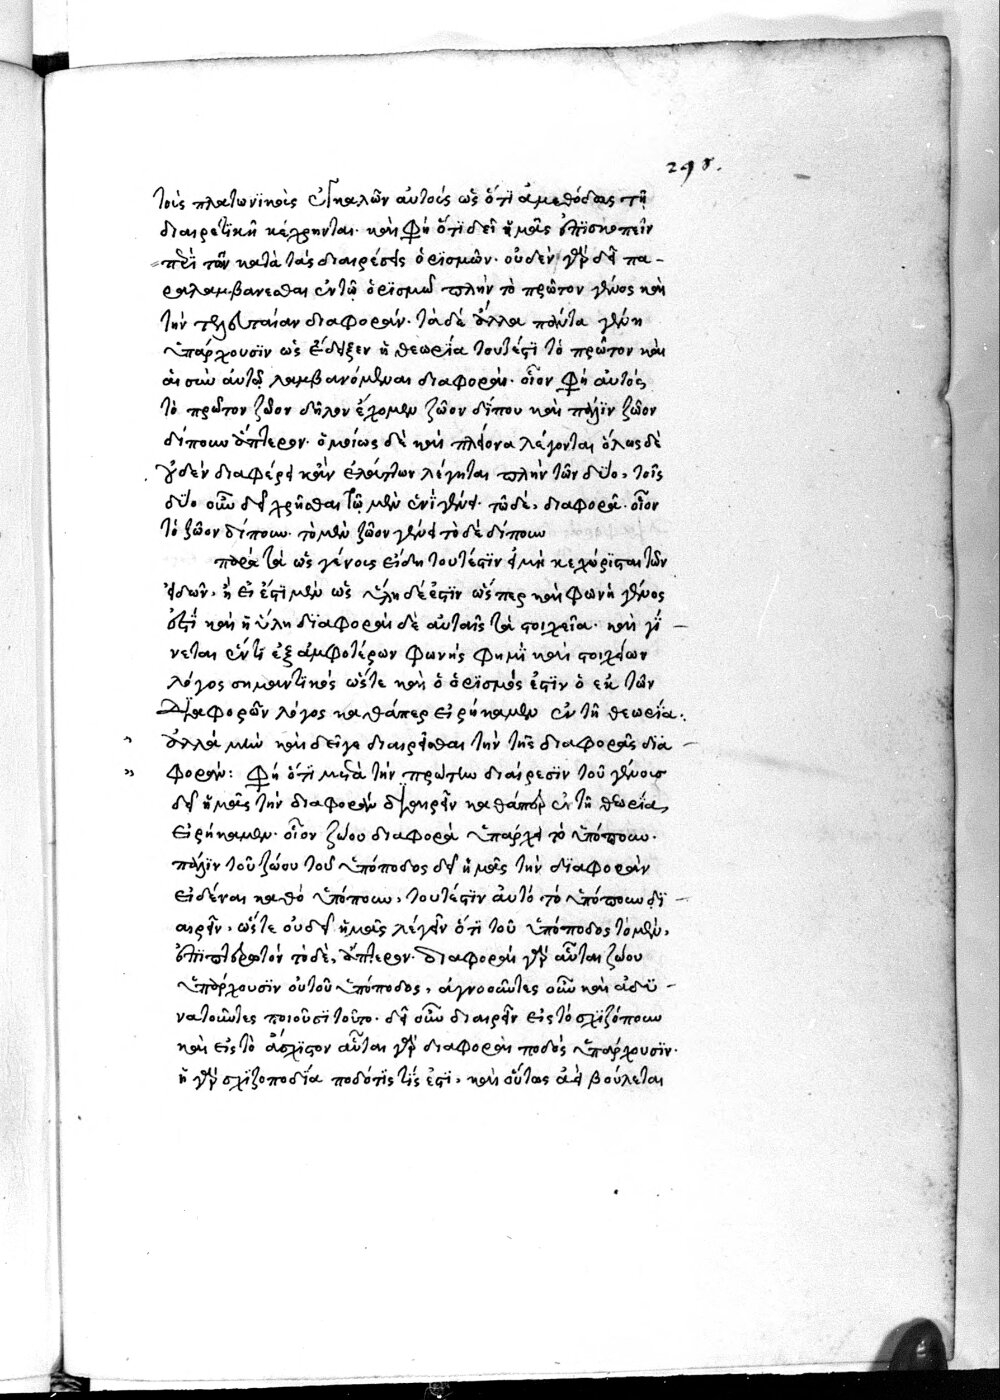 298.
τοῖς πλατωνϊκοῖς ἐγκαλῶν αὐτοῖς ὡς ὅτι ἀμεθόδως τῆ
διαιρετϊκῆ κέχρηνται· καὶ φη ὅτϊ δεῖ ἡμᾶς ἐπϊσκοπεῖν
περὶ τῶν κατὰ τὰς διαιρέσεις ὁρϊσμῶν· οὐδὲν γὰρ δεῖ πα-
ραλαμβάνεσθαι ἐν τῶ ὁρϊσμῶ πλὴν τὸ πρῶτον γένος καὶ
τὴν τελευταίαν διαφοράν· τὰ δὲ ἄλλα πάντα γένη
ὑπάρχουσϊν ὡς ἔδειξεν ἡ θεωρία τουτέστϊ τὸ πρῶτον καὶ
αἱ σὺν αὐτῶ λαμβανόμεναι διαφοραί· οἷον φη αὐτὸς
τὸ πρῶτον ζῶον δῆλον ἐχόμενον ζῶον δίπουν καὶ πάλϊν ζῶον
δίπουν ἄπτερον· ὁμοίως δὲ καὶ πλείονα λέγονται ὅλως δὲ
οὐδὲν διαφέρει κἂν ἐλάττων λέγηται πλὴν τῶν δύο, τοῖς
δύο οὖν δεῖ χρῆσθαι τῶ μὲν ἑνὶ γένει· τῶ δὲ, διαφορᾶ· οἷον
τὸ ζῶον δίπουν· τὸ μὲν ζῶον γένει τὸ δὲ δίπουν
παρὰ τὰ ὡς γένους εἴδη τουτέστϊν εἰ μὴ κεχώρϊσται τῶν
εἰδῶν, ἢ εἰ ἔστϊ μὲν ὡς ὕλη δέ ἐστϊν ὥσπερ καὶ φωνὴ γένος
ἐστὶ καὶ ἡ ὕλη δϊαφοραὶ δὲ αὐταῖς τὰ στοιχεῖα· καὶ γί-
νεται ἔν τϊ ἐξ ἀμφοτέρων φωνῆς φημϊ καὶ στοιχείων
λόγος σημαντϊκὸς ὥστε καὶ ὁ ὁρϊσμὸς ἐστϊν ὁ ἐκ τῶν
διαφορῶν λόγος καθάπερ εἰρήκαμεν ἐν τῆ θεωρία·
ἀλλὰ μὴν καὶ δεῖ γε διαιρεῖσθαι τὴν τῆς διαφορᾶς δϊα-
φοράν: φη ὅτι μετὰ τὴν πρώτην διαίρεσϊν τοῦ γένους
δεῖ ἡμᾶς τὴν διαφορὰν διαιρεῖν καθάπερ ἐν τῆ θεωρία
εἰρήκαμεν· οἷον ζώου διαφορὰ ὑπάρχει τὸ ὑπόπουν·
πάλϊν τοῦ ζώου τοῦ ὑπόποδος δεῖ ἡμᾶς τὴν δϊαφορὰν
εἰδέναι καθὸ ὑπόπουν, τουτέστϊν αὐτὸ, τὸ ὑπόπουν δϊ-
αιρεῖν, ὥστε οὐ δεῖ ἡμᾶς λέγειν ὅτϊ τοῦ ὑπόποδος τὸ μὲν,
ἐστϊ πτερωτὸν τὸ δὲ, ἄπτερον· διαφοραὶ γὰρ αὗται ζώου
ὑπάρχουσϊν οὐ τοῦ ὑπόποδος, ἀγνοοῦντες οὖν καὶ ἀδυ-
νατοῦντες ποιοῦσϊ τοῦτο· δεῖ οὖν διαιρεῖν εἰς τὸ σχϊζόπουν
καὶ εἰς τὸ ἄσχϊστον αὗται γὰρ διαφοραὶ ποδὸς ὑπάρχουσϊν·
ἡ γὰρ σχϊζοποδία ποδότϊς τίς ἐστϊ, καὶ οὕτως ἀεὶ βούλεται